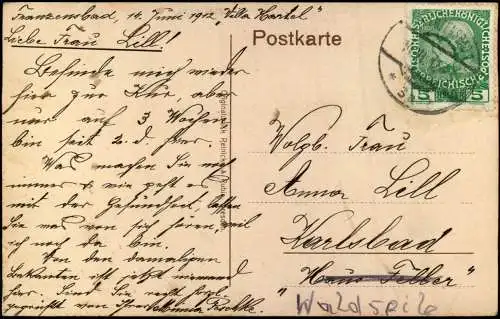 Franzensbad, 14. Juni 1912 "Villa Hartel"
Liebe Frau Lill!
Befinde mich wieder
hier zur Kur, aber
nur auf 3 Wochen
bin seit 2. d. hier.
Was machen Sie noch
immer u. wie geht es
mit der Gesundheit, lassen
Sie was von sich hören, weil
ich noch da bin.
Von den damaligen
Bekannten ist jetzt niemand
hier. Sind Sie recht herzl.
gegrüßt von Ihrer
Postkarte
Wolgb. Frau
Anna Lill
Karlsbad
"Haus Feller"
Waldzeile
5 5